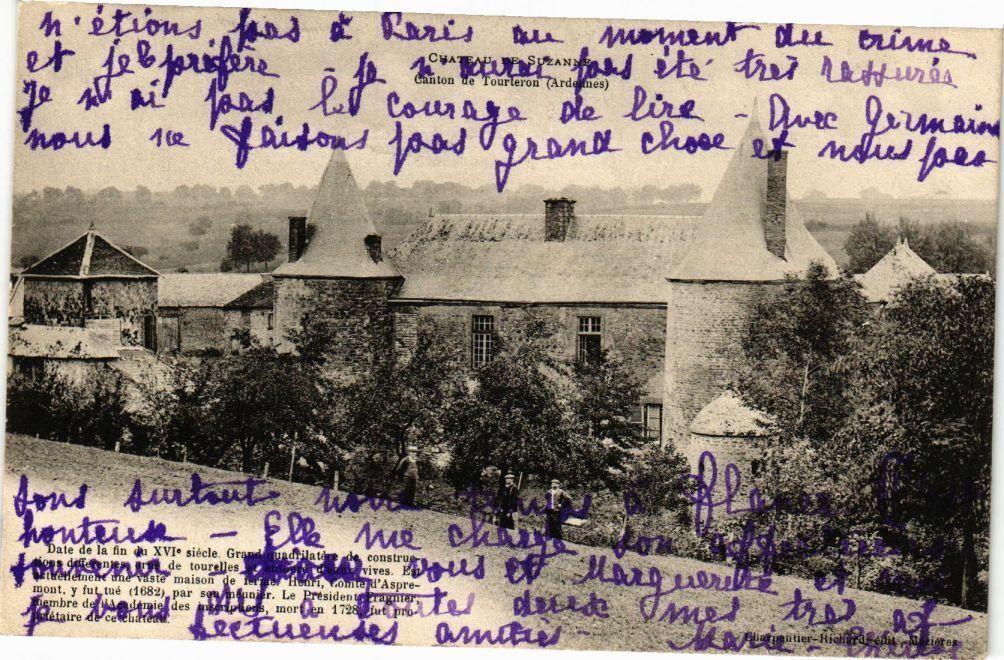 n'étions pas à Paris au moment du crime
CHATEAU DE SUZANNE
et je préfère - je n'aurai pas été très rassurés
Canton de Tourteron (Ardennes)
Je n'ai pas le courage de lire - Avec Germaine
nous ne faisons pas grand chose et nous pas
sons surtout notre temps à flaner
honteux - Elle me charge son
vous et Marguerite et
Date de la fin du XVIe siècle. Grand quadrilatère de construc-
tions différentes, orné de tourelles et entouré d'eaux vives. Est
actuellement une vaste maison de ferme. Henri, Comte d'Aspre-
mont, y fut tué (1682) par son meunier. Le Président
membre de l'Académie des inscriptions, mort en 1728, fut pro-
priétaire de ce château.
je à toutes deux mes très af
fectueuses amitiés -
Charpentier-Richard, édit. Mézières